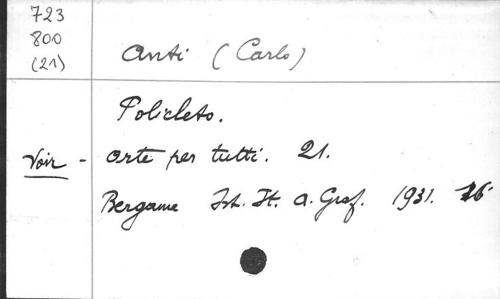 723
800
(21)
Anti (Carlo)
Policleto.
Voir - Arte per tutti. 21.
Bergame Ist. It. A. Graf. 1931. 16